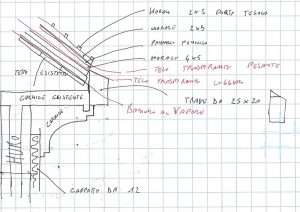 MORALI 2×5 PORTA TEGOLA
MORALE 2×5
PANNELLI
MORALE 4×5
TELO TRASPIRANTE PESANTE
TELO TRASPIRANTE LEGGERO
TETTO ESISTENTE
TRAVE DA 25×20
CORNICE ESISTENTE
BARRIERA AL VAPORE
MURO
CAPPOTTO DA 12